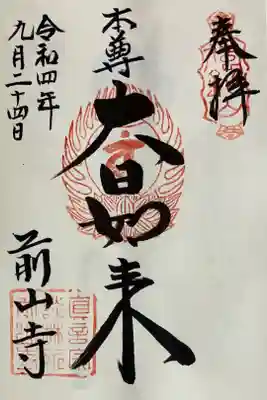 奉拝
本尊
大日如来
令和四年
九月二十四日
前山寺